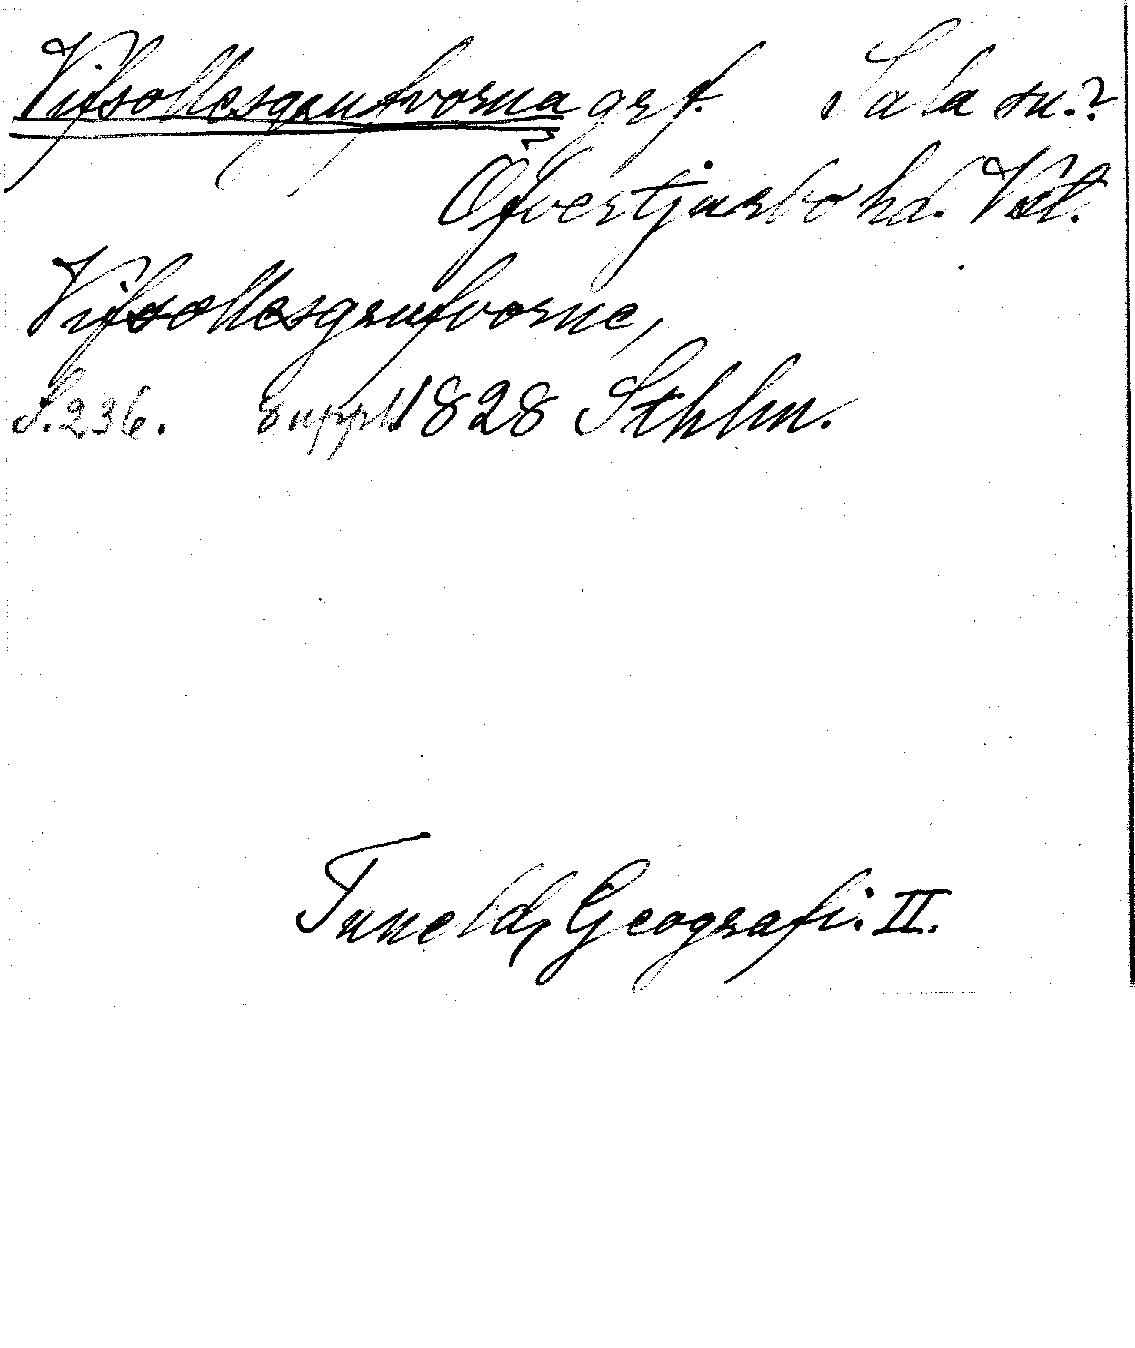 Vifsollesgrufvorna grf. Sala sn.?
Öfvertjurbo hd. Vstl.
Vifsollesgrufvorne,
S. 236. suppl. 1828 Sthlm.
Tuneld, Geografi. II.